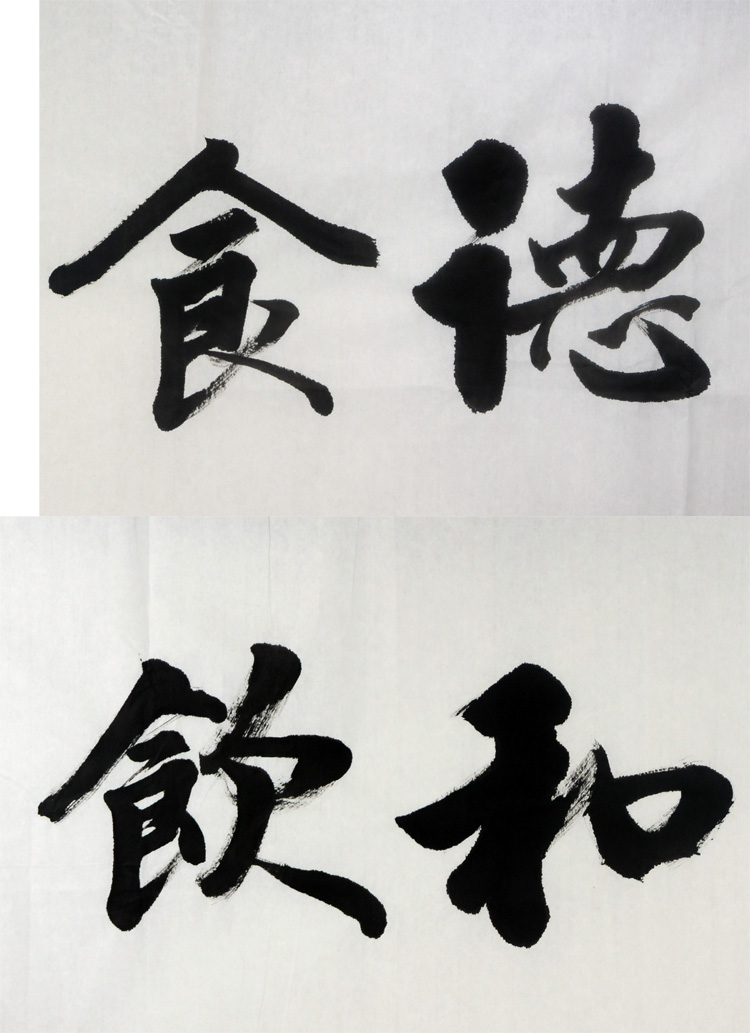 食德
飲和